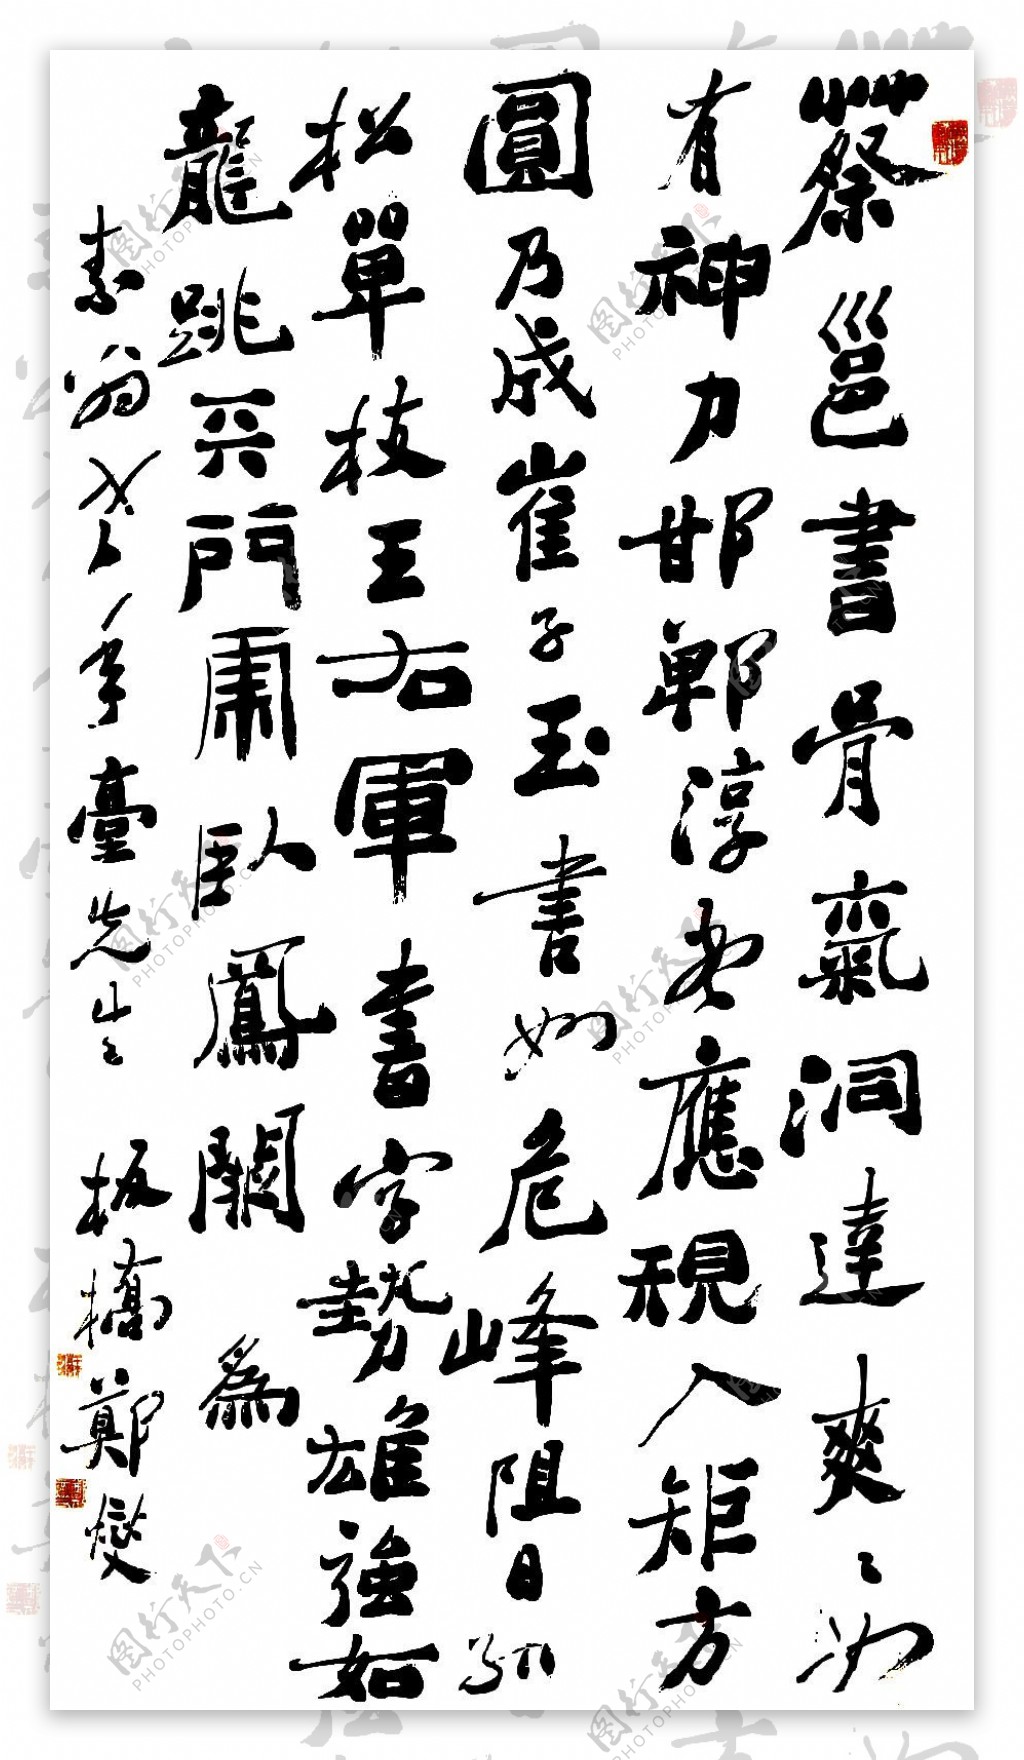 蔡邕書骨氣洞達爽〻如
有神力邯鄲淳書應規入矩方
圓乃成崔子玉書如危峰阻日孤
松單枝王右軍書字勢雄強如
龍跳天門虎臥鳳闕為
素翁老年臺先生 板橋鄭燮